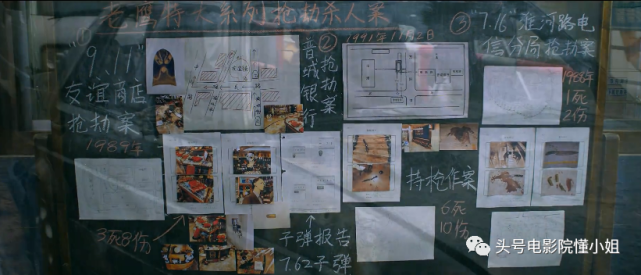 特大系列抢劫杀人案
①
"9.11"
友谊商店
抢劫案
1989年
3死8伤
②
晋城银行
抢劫案
1991年11月2日
子弹报告
7.62子弹
持枪作案
6死
10伤
③"7.16"淮河路电
信分局抢劫案
1死
2伤
头号电影院懂小姐